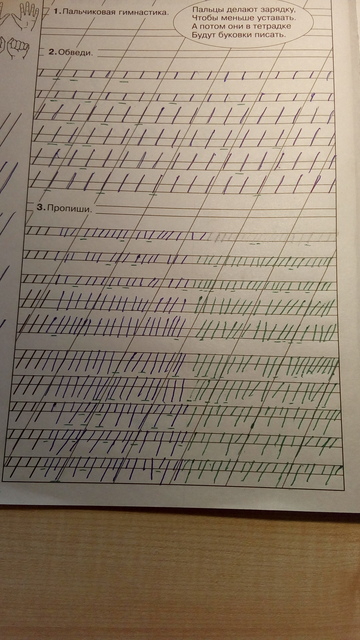 1. Пальчиковая гимнастика.
Пальцы делают зарядку,
Чтобы меньше уставать.
А потом они в тетрадке
Будут буковки писать.
2. Обведи.
3. Пропиши.